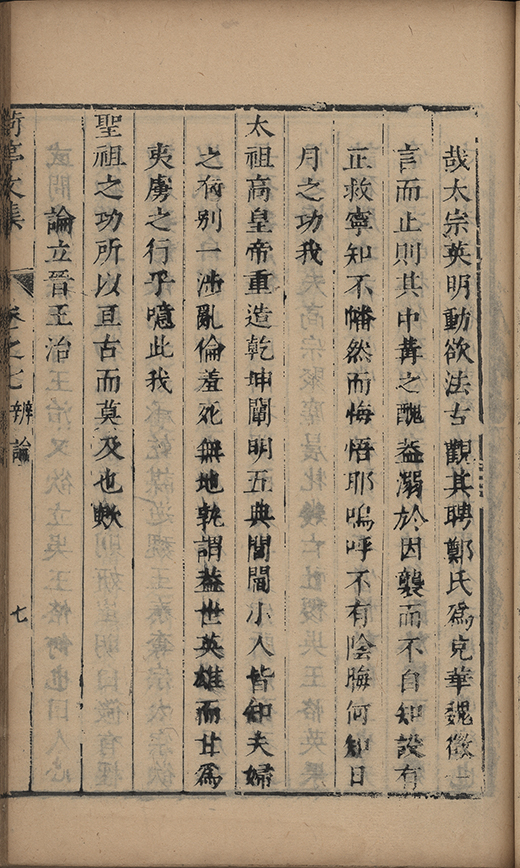 哉太宗英明動欲法古觀其聘鄭氏爲克華魏徵一
言而止則其中冓之醜蓋溺於因襲而不自知設有
正救寧知不幡然而悔悟耶嗚呼不有陰晦何知日
月之功我
太祖高皇帝重造乾坤闡明五典閭閻小人皆知夫婦
之有別一涉亂倫羞死無地孰謂蓋世英雄而甘爲
夷虜之行乎噫此我
聖祖之功所以亘古而莫及也歟
論立晉王治
亭文集 卷之七 辨論 七